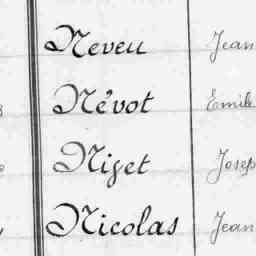 Neveu Jean
Névot Emile
Nizet Josep
Nicolas Jean